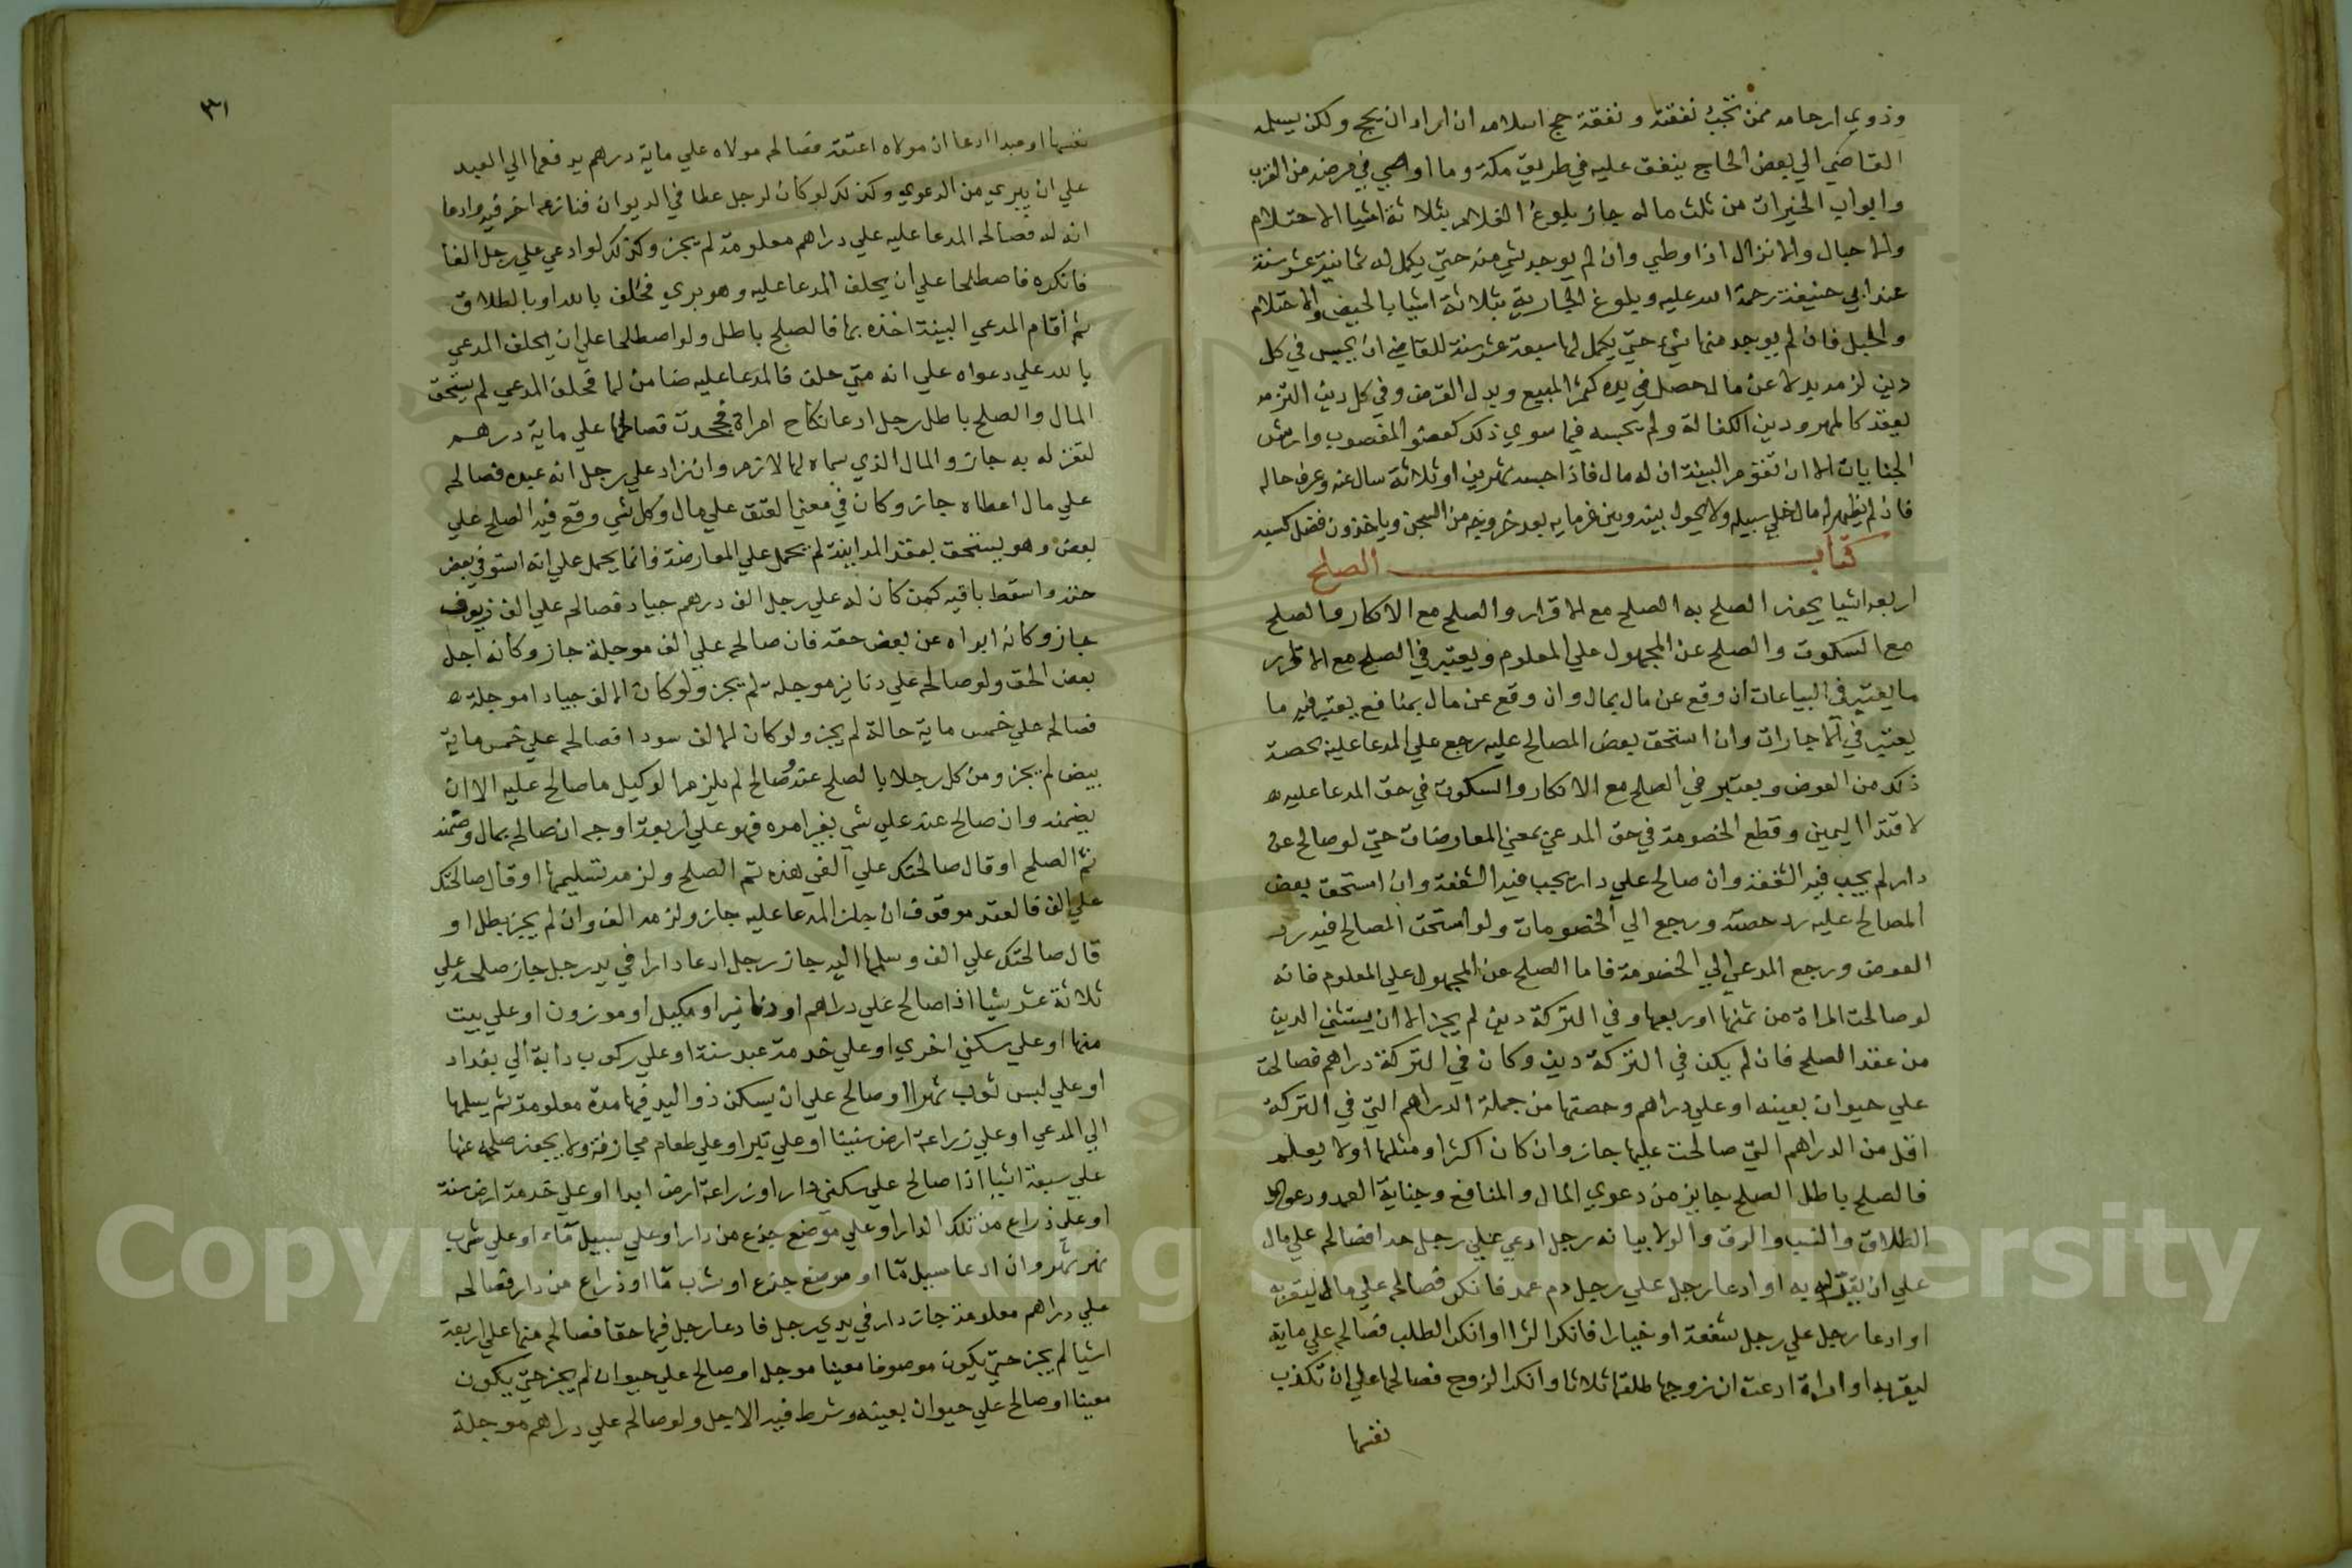 وذوي ارحامه ممن تجب نفقته ونفقة حج اسلامه ان اراد ان يحج ولكن يسلمه
القاضي الي بعض الحاج ينفق عليه في طريق مكة وما اوصي في مرضه من القرب
وابواب الخيرات من ثلث ماله جاز بلوغ الغلام بثلاثة اشيا الاحتلام
والاحبال والانزال اذا وطي وان لم يوجد شي منه حتي يكمل له ثمانية عشر سنة
عند ابي حنيفة رحمة الله عليه وبلوغ الجارية بثلاثة اشيا بالحيض والاحتلام
والحبل فان لم يوجد منها شي حتي يكمل لها سبعة عشر سنة للقاضي ان يحبس في كل
دين لزمه بدلا عن مال حصل في يده كثمن المبيع وبدل القرض وفي كل دين التزمه
بعقد كالمهر ودين الكفالة ولم يحبسه فيما سوي ذلك كعوض المغصوب وارش
الجنايات الا ان تقوم البينة ان له مال فاذا حبسه شهرين او ثلاثة سال عنه وعرف حاله
فان لم يظهر له مال خلي سبيله ولا يحول بينه وبين غرمايه بعد خروجه من السجن وياخذون فضل كسبه
كتاب الصلح
اربعة اشيا يجوز الصلح به الصلح مع الاقرار والصلح مع الانكار والصلح
مع السكوت والصلح عن المجهول علي المعلوم ويعتبر في الصلح مع الاقرار
ما يعتبر في البياعات ان وقع عن مال بمال وان وقع عن مال بمنافع يعتبر فيه ما
يعتبر في الاجارات وان استحق بعض المصالح عليه رجع علي المدعا عليه بحصة
ذلك من العوض ويعتبر في الصلح مع الانكار والسكوت في حق المدعا عليه
لافتدا اليمين وقطع الخصومة في حق المدعي بمعني المعارضات حتي لو صالح عن
دار لم يجب فيه الشفعة وان صالح علي دار تجب فيه الشفعة وان استحق بعض
المصالح عليه رد حصته ورجع الي الخصومات ولو استحق المصالح فيه رد
العوض ورجع المدعي الي الخصومة فاما الصلح عن المجهول علي المعلوم فانه
لو صالحت المراة من ثمنها او ربعها وفي التركة دين لم يجز الا ان يستثني الدين
من عقد الصلح فان لم يكن في التركة دين وكان في التركة دراهم فصالحت
علي حيوان بعينه او علي دراهم وحصتها من جملة الدراهم التي في التركة
اقل من الدراهم التي صالحت عليها جاز وان كان اكثر او مثلها او لا يعلم
فالصلح باطل الصلح جايز من دعوي المال والمنافع وجناية العمد ودعوي
الطلاق والنسب والرق والولا بيانه رجل ادعي علي رجل حدا فصالحه علي مال
علي ان يقر له به او ادعا رجل علي رجل دم عمد فانكر فصالحه علي مال ليقر به
او ادعا رجل علي رجل شفعة او خيارا فانكر الشرا او انكر الطلب فصالحه علي ماية
ليقر به او امراة ادعت ان زوجها طلقها ثلاثا وانكر الزوج فصالحها علي ان تكذب
نفسها
٣١
نفسها او عبدا ادعا ان مولاه اعتقه فصالحه مولاه علي ماية درهم يدفعها الي العبد
علي ان يبري من الدعوي وكذلك لو كان لرجل عطا في الديوان فنازعه اخر فيه وادعا
انه له فصالحه المدعا عليه علي دراهم معلومة لم يجز وكذلك لو ادعي علي رجل الفا
فانكره فاصطلحا علي ان يحلف المدعا عليه وهو بري فحلف بالله او بالطلاق
ثم اقام المدعي البينة اخذه بها فالصلح باطل ولو اصطلحا علي ان يحلف المدعي
بالله علي دعواه علي انه متي حلف فالمدعا عليه ضامن لها فحلف المدعي لم يستحق
المال والصلح باطل رجل ادعا نكاح امراة فجحدت فصالحها علي ماية درهم
لتقر له به جاز والمال الذي سماه لها لازم وان زاد علي رجل انه عبده فصالحه
علي مال اعطاه جاز وكان في معني العتق علي مال وكل شي وقع فيه الصلح علي
بعض وهو يستحق بعقد المداينة لم يحمل علي المعارضة فانما يحمل علي انه استوفي بعض
حقه واسقط باقيه كمن كان له علي رجل الف درهم جياد فصالحه علي الف زيوف
جاز وكانه ابراه عن بعض حقه فان صالحه علي الف موجلة جاز وكانه اجل
بعض الحق ولو صالحه علي دنانيز موجلة لم يجز ولو كان الالف جيادا موجلة
فصالحه علي خمس ماية حالة لم يجز ولو كان الالف سودا فصالحه علي خمس ماية
بيض لم يجز ومن كل رجلا بالصلح عنه وصالح لم يلزم الوكيل ما صالح عليه الا ان
يضمنه وان صالح عنه علي شي بغير امره فهو علي اربعة اوجه ان صالح بمال وضمنه
تم الصلح او قال صالحتك علي الفي هذه تم الصلح ولزمه تسليمها او قال صالحتك
علي الف فالعقد موقوف ان جاز المدعا عليه جاز ولزمه الف وان لم يجز بطل او
قال صالحتك علي الف وسلمها اليه جاز رجل ادعا دارا في يد رجل جاز صلحه علي
ثلاثة عشر شيا اذا صالح علي دراهم او دنانير او مكيل او موزون او علي بيت
منها او علي سكني اخري او علي خدمة عبد سنة او علي ركوب دابة الي بغداد
او علي لبس ثوب شهرا او صالح علي ان يسكن ذو اليد فيها مدة معلومة ثم يسلمها
الي المدعي او علي زراعة ارض سنينا او علي تبر او علي طعام مجازفة ولا يجوز صلحه عنها
علي سبعة اشيا اذا صالح علي سكني دار او زراعة ارض ابدا او علي خدمة ارض سنة
او علي ذراع من تلك الدار او علي موضع جذع من دار او علي سبيل ماء او علي شرب
نهر شهر وان ادعا سبيل ما او موضع جذع او شرب ما او ذراع من دار فصالحه
علي دراهم معلومة جازت دار في يدي رجل فادعا رجل فيها حقا فصالحه منها علي اربعة
اشيا لم يجز حتي يكون موصوفا معينا موجل او صالح علي حيوان لم يجز حتي يكون
معينا او صالح علي حيوان بعينه وشرط فيه الاجل ولو صالحه علي دراهم موجلة
Copyright © King Saud University